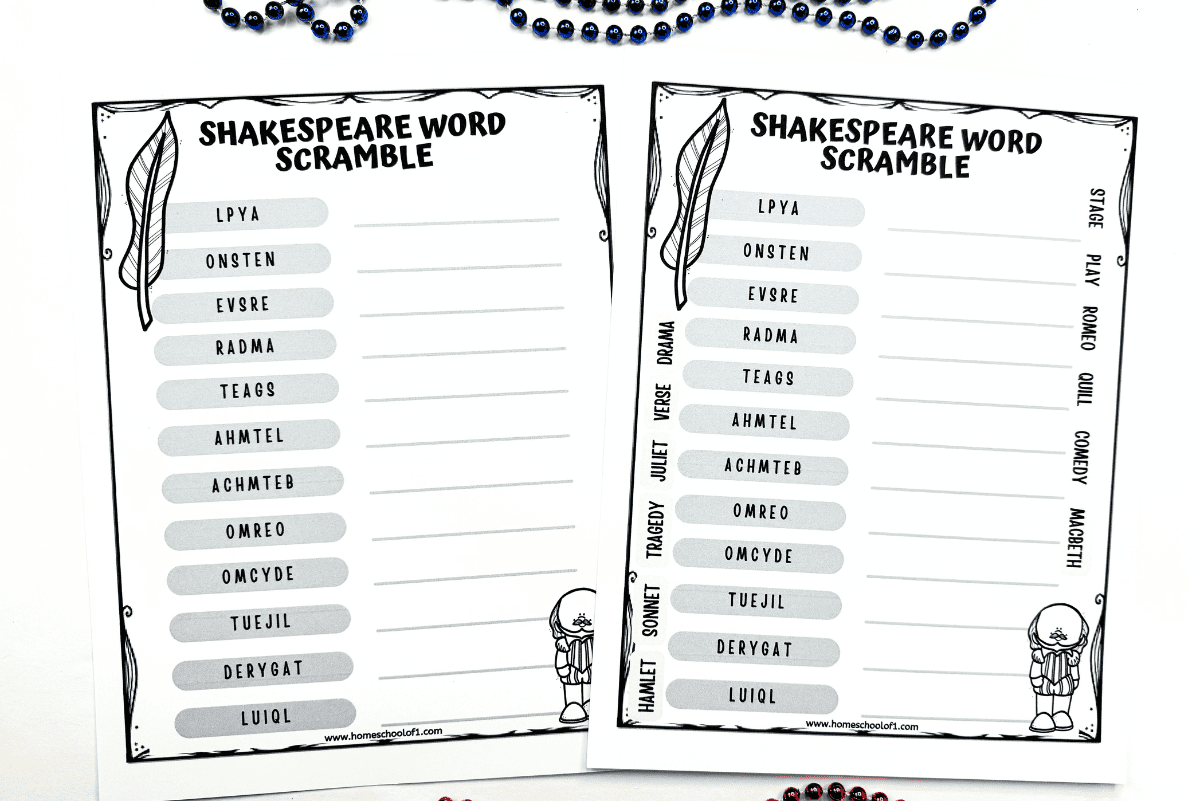 SHAKESPEARE WORD
SCRAMBLE
LPYA
ONSTEN
EVSRE
RADMA
TEAGS
AHMTEL
ACHMTEB
OMREO
OMCYDE
TUEJIL
DERYGAT
LUIQL
www.homeschoolof1.com
SHAKESPEARE WORD
SCRAMBLE
LPYA
ONSTEN
EVSRE
RADMA
TEAGS
AHMTEL
ACHMTEB
OMREO
OMCYDE
TUEJIL
DERYGAT
LUIQL
DRAMA
VERSE
JULIET
TRAGEDY
SONNET
HAMLET
STAGE
PLAY
ROMEO
QUILL
COMEDY
MACBETH
www.homeschoolof1.com